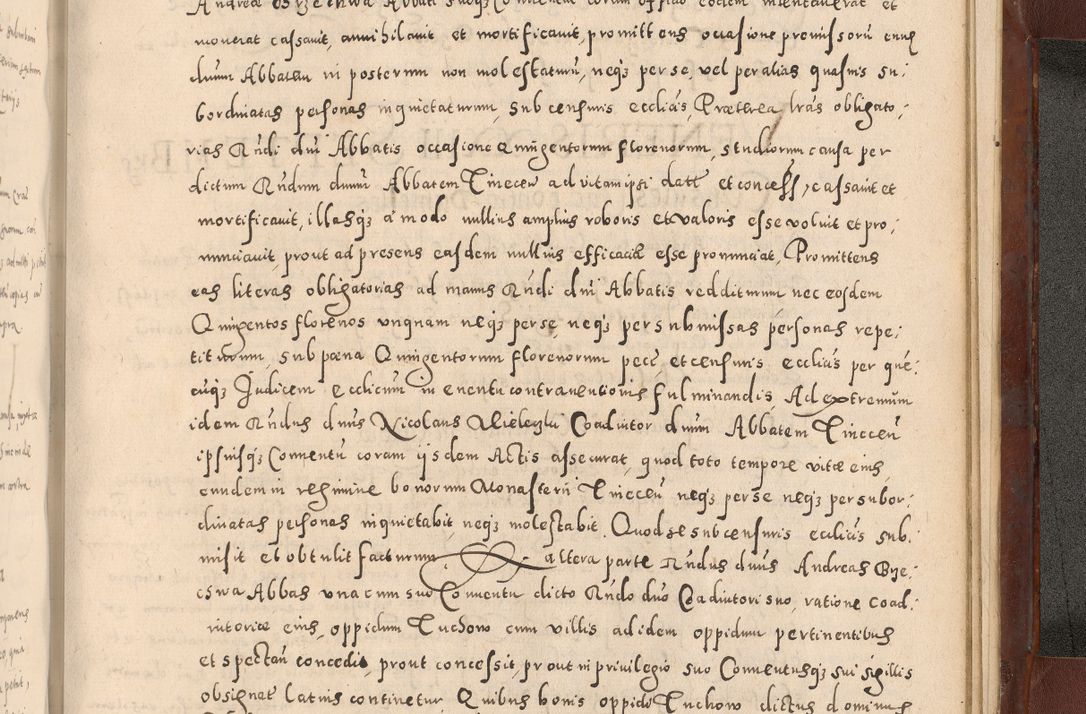 mouerat cassauit, annihilauit et mortificauit, promittens occasione premissorũ eunđ
dnum Abbatem in posterum non molestaturũ, neqʒ per se, vel per alias quasuis su:
bordinatas personas inquietaturum, sub censuris eccliãs, Præterea lrãs obligato:
rias Rñdi dni Abbatis occasione Quingentorum florenorum, studiorum causa per
dictum Rñdum dnum Abbatem Tinecen ad vitam ipsi datt et concess, cassauit et
mortificauit, illasqʒ a modo nullius amplius roboris et valoris esse voluit et pro:
nunciauit, prout ad presens easdem nullius efficaciæ esse pronunciat, Promittens
eas literas obligatorias ad manus Rñdi dni Abbatis redditurum nec eosdem
Quingentos florenos vnquam neqʒ per se, neqʒ per submissas personas repe:
titurum, sub pæna Quingentorum florenorum pecũ et censuris eccliãs per quẽ:
cuqʒ Judicem ecclicum in euentu contrauentionis fulminandis, Ad extremum
idem Rñdus dnus Nicolaus Mieleczki Coadiutor dnum Abbatem Tinecen
ipsiusqʒ Conuentũ coram ijsdem Actis assecurat, quod toto tempore vitæ eius,
eundem in regimine bonorum Monasterii Tinecen neqʒ per se neqʒ per subor:
dinatas personas inquietabit, neqʒ molestabit. Quod se sub censuris eccliãs sub:
misit et obtulit facturum, altera parte Rñdus dnus Andreas Brze:
cswa Abbas vna cum suo Conuentu dicto Rñdo dno Coadiutori suo, ratione Coad:
iutoriæ eius, oppidum Tuchow cum villis ad idem oppidum pertinentibus
et spectañ concedit prout concessit, prout in priuilegio suo Conuentusqʒ sui sigillis
obsignat latius continetur Quibus bonis oppido Tuchow dictus dominus